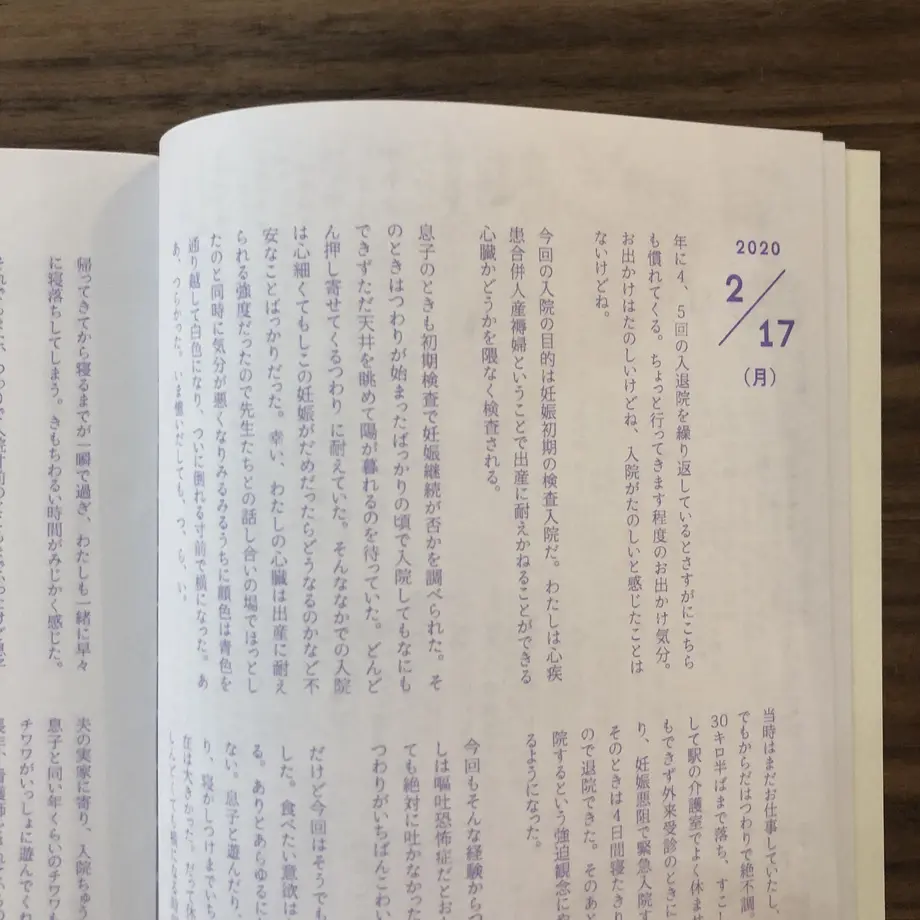 2020
2/17
(月)
年に4、5回の入退院を繰り返しているとさすがにこちら
も慣れてくる。ちょっと行ってきます程度のお出かけ気分。
お出かけはたのしいけどね、入院がたのしいと感じたことは
ないけどね。
今回の入院の目的は妊娠初期の検査入院だ。わたしは心疾
患合併人産褥婦ということで出産に耐えかねることができる
心臓かどうかを隈なく検査される。
息子のときも初期検査で妊娠継続が否かを調べられた。そ
のときはつわりが始まったばっかりの頃で入院してもなにも
できずただ天井を眺めて陽が暮れるのを待っていた。どんど
ん押し寄せてくるつわりに耐えていた。そんななかでの入院
は心細くてもしこの妊娠がだめだったらどうなるのかなど不
安なことばっかりだった。幸い、わたしの心臓は出産に耐え
られる強度だったので先生たちとの話し合いの場でほっとし
たのと同時に気分が悪くなりみるみるうちに顔色は青色を
通り越して白色になり、ついに倒れる寸前で横になった。あ
あ、つらかった。いま憶いだしても、つ、ら、い。
当時はまだお仕事していたし、
でもからだはつわりで絶不調。
30キロ半ばまで落ち、すこし
して駅の介護室でよく休ませ
もできず外来受診のときに
り、妊娠悪阻で緊急入院す
そのときは4日間寝たきり
ので退院できた。そのあと
院するという強迫観念にや
るようになった。
今回もそんな経験からつ
しは嘔吐恐怖症だとお
ても絶対に吐かなかった
つわりがいちばんこわい
だけど今回はそうでも
した。食べたい意欲は
る。ありとあらゆるに
ない。息子と遊んだり、
り、寝かしつけまでいち
在は大きかった。だって休
帰ってきてから寝るまでが一瞬で過ぎ、わたしも一緒に早々
に寝落ちしてしまう。きもちわるい時間がみじかく感じた。
夫の実家に寄り、入院ちゅう
息子と同い年くらいのチワワも
チワワがいっしょに遊んでくれ